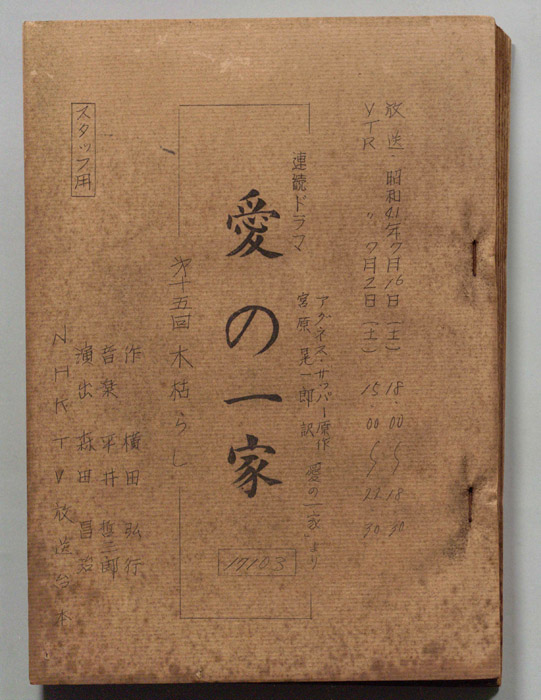 放送 昭和41年7月16日（土） 18 00〜18 30
VTR 〃 7月2日（土） 15 00〜22 30
連続ドラマ
アグネス・サッパー原作
宮原晃一郎訳 「愛の一家」より
愛の一家
17103
第十五回 木枯らし
作 横田 弘行
音楽 平井 哲三郎
演出 森田
スタッフ用
NHKTV放送台本